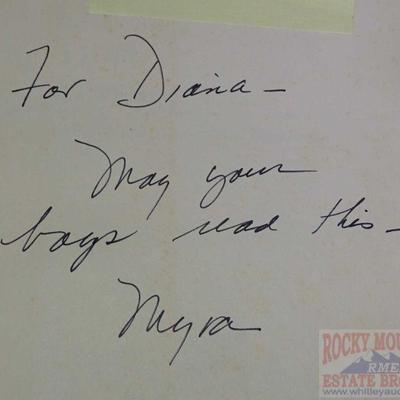 For Diana –
May your
boys read this –
Myra
ROCKY MOU
RME
ESTATE BRO
www.whitleyauct